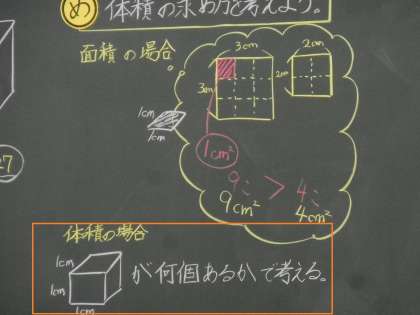 め 体積の求め方を考えよう。
面積の場合
3cm
2cm
3cm
2cm
1cm
1cm
1cm²
27
9こ > 4こ
9cm² 4cm²
体積の場合
1cm
1cm
1cm
が何個あるかで考える。